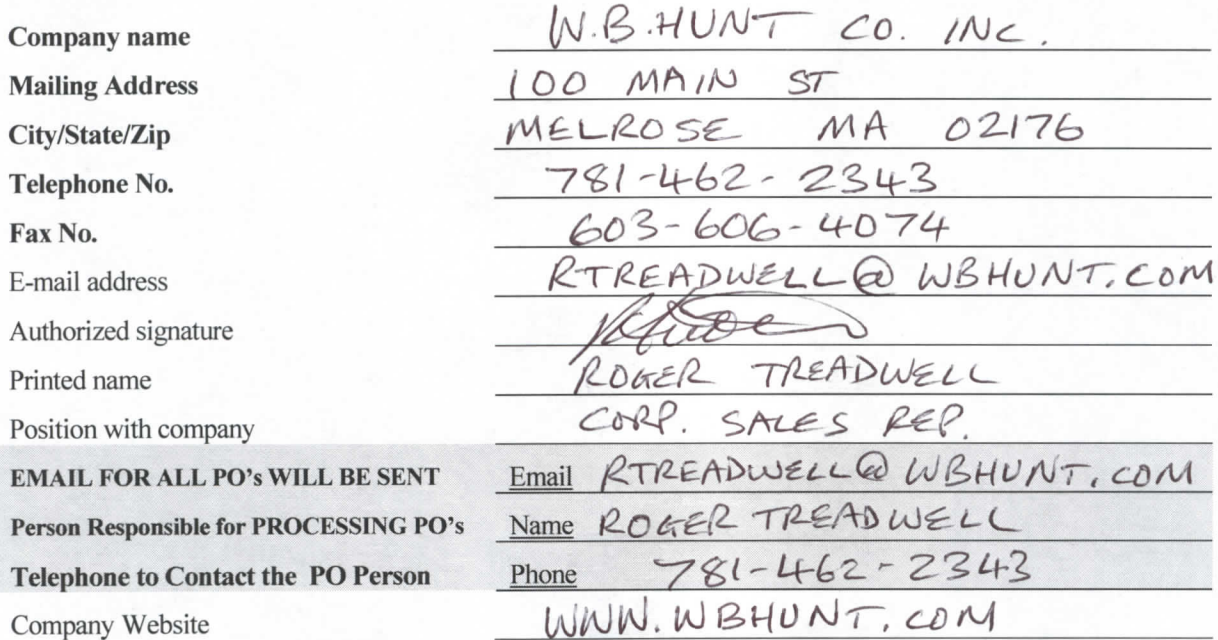 Company name W.B.HUNT CO. INC.
Mailing Address 100 MAIN ST
City/State/Zip MELROSE MA 02176
Telephone No. 781-462-2343
Fax No. 603-606-4074
E-mail address RTREADWELL@WBHUNT.COM
Authorized signature
Printed name ROGER TREADWELL
Position with company CORP. SALES REP.
EMAIL FOR ALL PO's WILL BE SENT Email RTREADWELL@WBHUNT.COM
Person Responsible for PROCESSING PO's Name ROGER TREADWELL
Telephone to Contact the PO Person Phone 781-462-2343
Company Website WWW.WBHUNT.COM